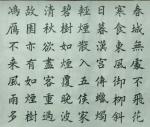 春城無處不飛花
寒食東風御柳斜
日暮漢宮傳蠟燭
輕煙散入五侯家
碧樹如煙覆晚波
清秋欲盡客重過
故園亦有如煙樹
鴻雁不來風雨多